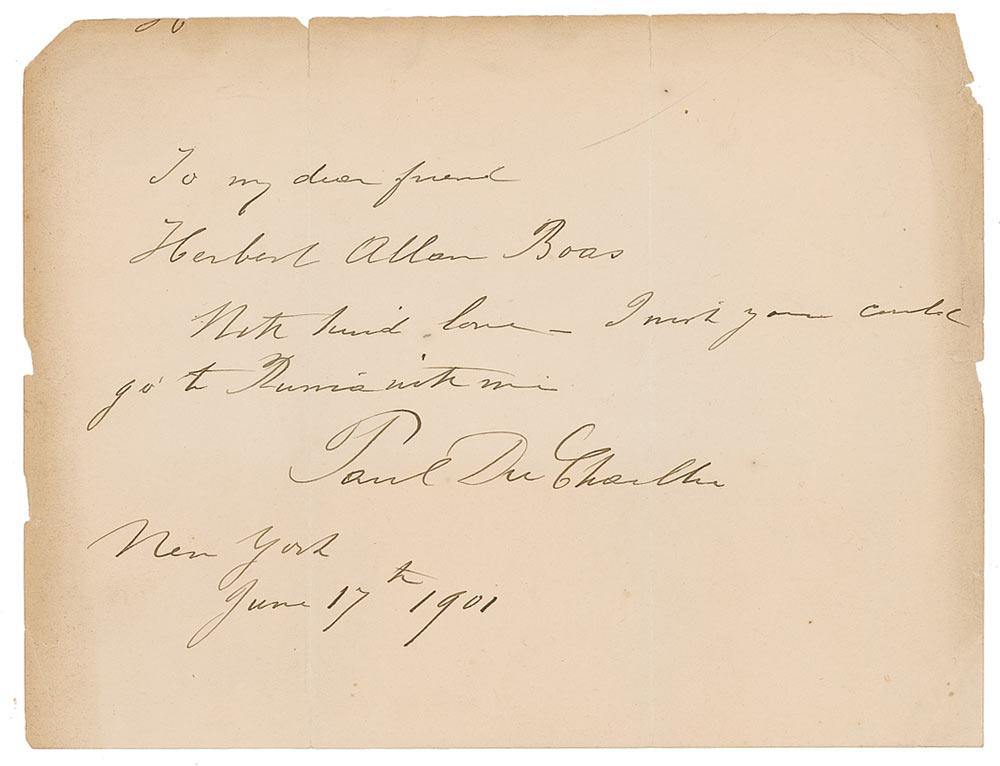 To my dear friend
Herbert Allan Boas
With kind love – I wish you could
go to Russia with me
Paul Du Chaillu
New York
June 17th 1901